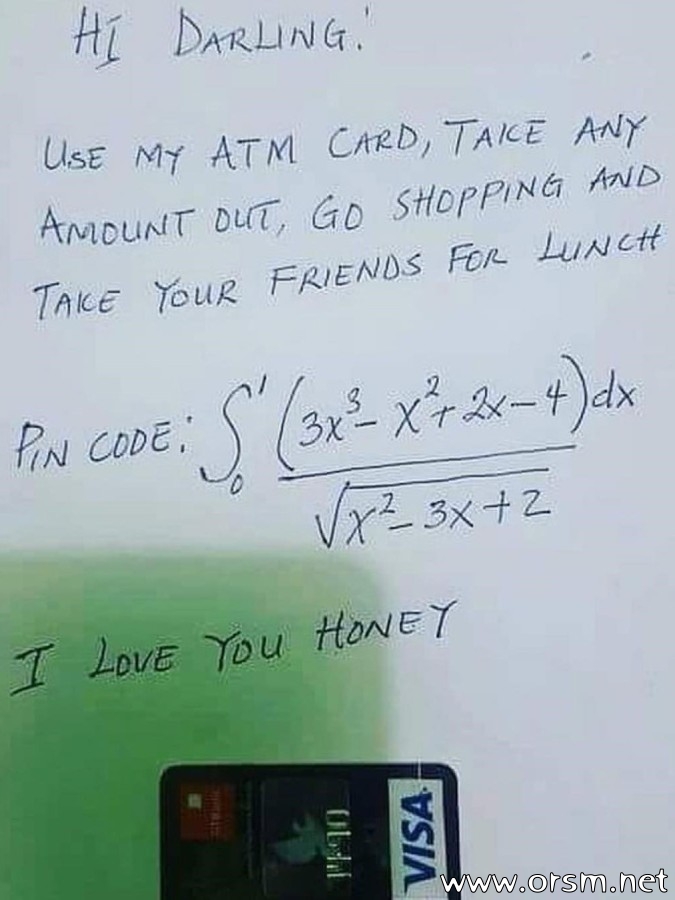 HI DARLING!
USE MY ATM CARD, TAKE ANY
AMOUNT OUT, GO SHOPPING AND
TAKE YOUR FRIENDS FOR LUNCH
PIN CODE: ∫₀¹ (3x³ - x² + 2x - 4)dx / √(x² - 3x + 2)
I LOVE YOU HONEY
VISA
www.orsm.net